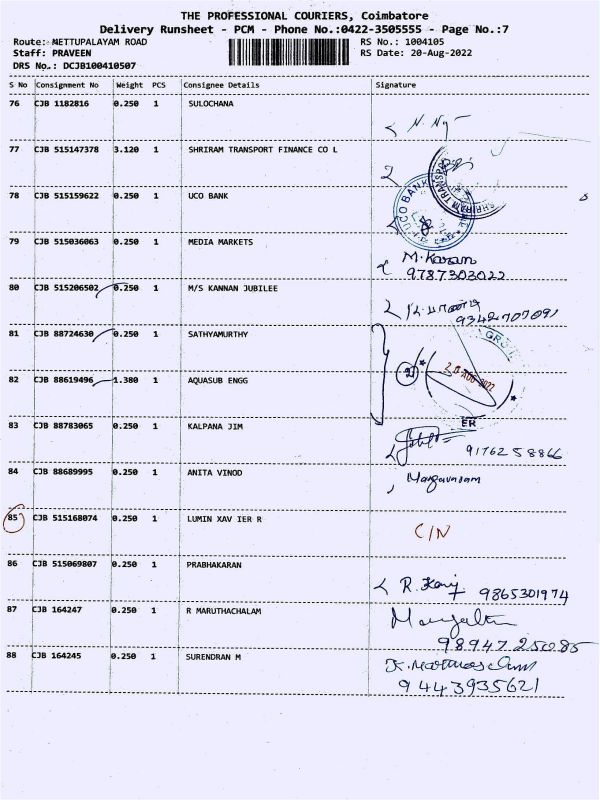 THE PROFESSIONAL COURIERS, Coimbatore
Delivery Runsheet - PCM - Phone No.:0422-3505555 - Page No.:7
Route: METTUPALAYAM ROAD RS No.: 1004105
Staff: PRAVEEN RS Date: 20-Aug-2022
DRS No.: DCJB100410507
S No Consignment No Weight PCS Consignee Details Signature
76 CJB 1182816 0.250 1 SULOCHANA
77 CJB 515147378 3.120 1 SHRIRAM TRANSPORT FINANCE CO L
SHRIRAM TRANSPORT
78 CJB 515159622 0.250 1 UCO BANK
UCO BANK
79 CJB 515036063 0.250 1 MEDIA MARKETS
M. Karan
9787303022
80 CJB 515206502 0.250 1 M/S KANNAN JUBILEE
9342707091
81 CJB 88724630 0.250 1 SATHYAMURTHY
82 CJB 88619496 1.380 1 AQUASUB ENGG
2
20 AUG 2022
ER
83 CJB 88783065 0.250 1 KALPANA JIM
9176258866
84 CJB 88689995 0.250 1 ANITA VINOD
85 CJB 515168074 0.250 1 LUMIN XAV IER R
C/N
86 CJB 515069807 0.250 1 PRABHAKARAN
9865301974
87 CJB 164247 0.250 1 R MARUTHACHALAM
9894725085
88 CJB 164245 0.250 1 SURENDRAN M
9443935621